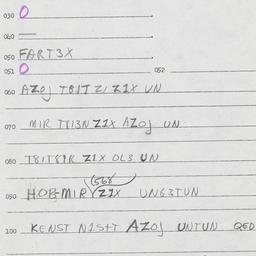 030 O
040 —
050 FART3X
051 O 052
060 AZOJ T8IT ZI Z1X UN
070 MIR T8I3N Z1X AZOJ UN
080 T8IT8IR Z1X OL3 UN
(568)
090 HOBMIR Z1X UNG3TUN
100 KENST N1S+T AZOJ UNTUN QED